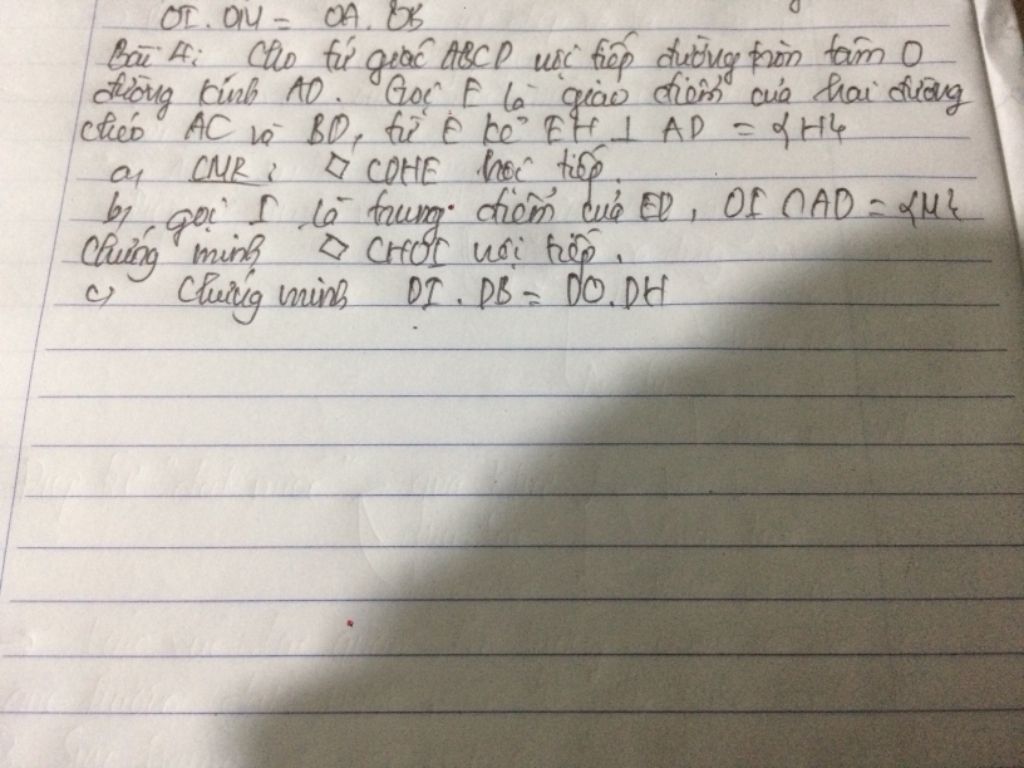 OI.OM = OA.OB
Bài 4: Cho tứ giác ABCD nội tiếp đường tròn tâm O
đường kính AD. Gọi E là giao điểm của hai đường
chéo AC và BD, từ E kẻ EH ⊥ AD = {H}
a, CMR: ◇ CDHE nội tiếp.
b, gọi I là trung điểm của ED, OI ∩ AD = {M}
Chứng minh ◇ CHOI nội tiếp.
c, Chứng minh DI.DB = DO.DH